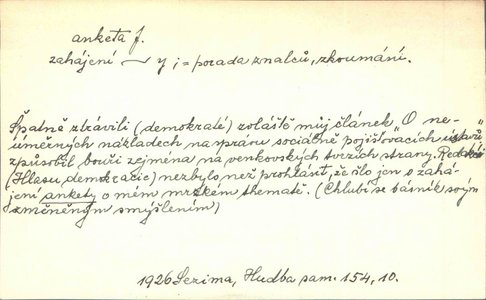 anketa f.
zahájení ~ y ; = porada znalců, zkoumání.
Špatně ztrávili (demokraté) zvláště můj článek „O ne-
úměrných nákladech na správu sociálně pojišťovacích ústavů"
způsobil bouři zejména na venkovských tvrzích strany. Redakci
(Hlasu demokracie) nezbylo než prohlásit, že šlo jen o zahá-
jení ankety o mém mrzkém thematě. (Chlubí se básník svým
změněným smýšlením)
1926 Sezima, Hudba sam. 154, 10.